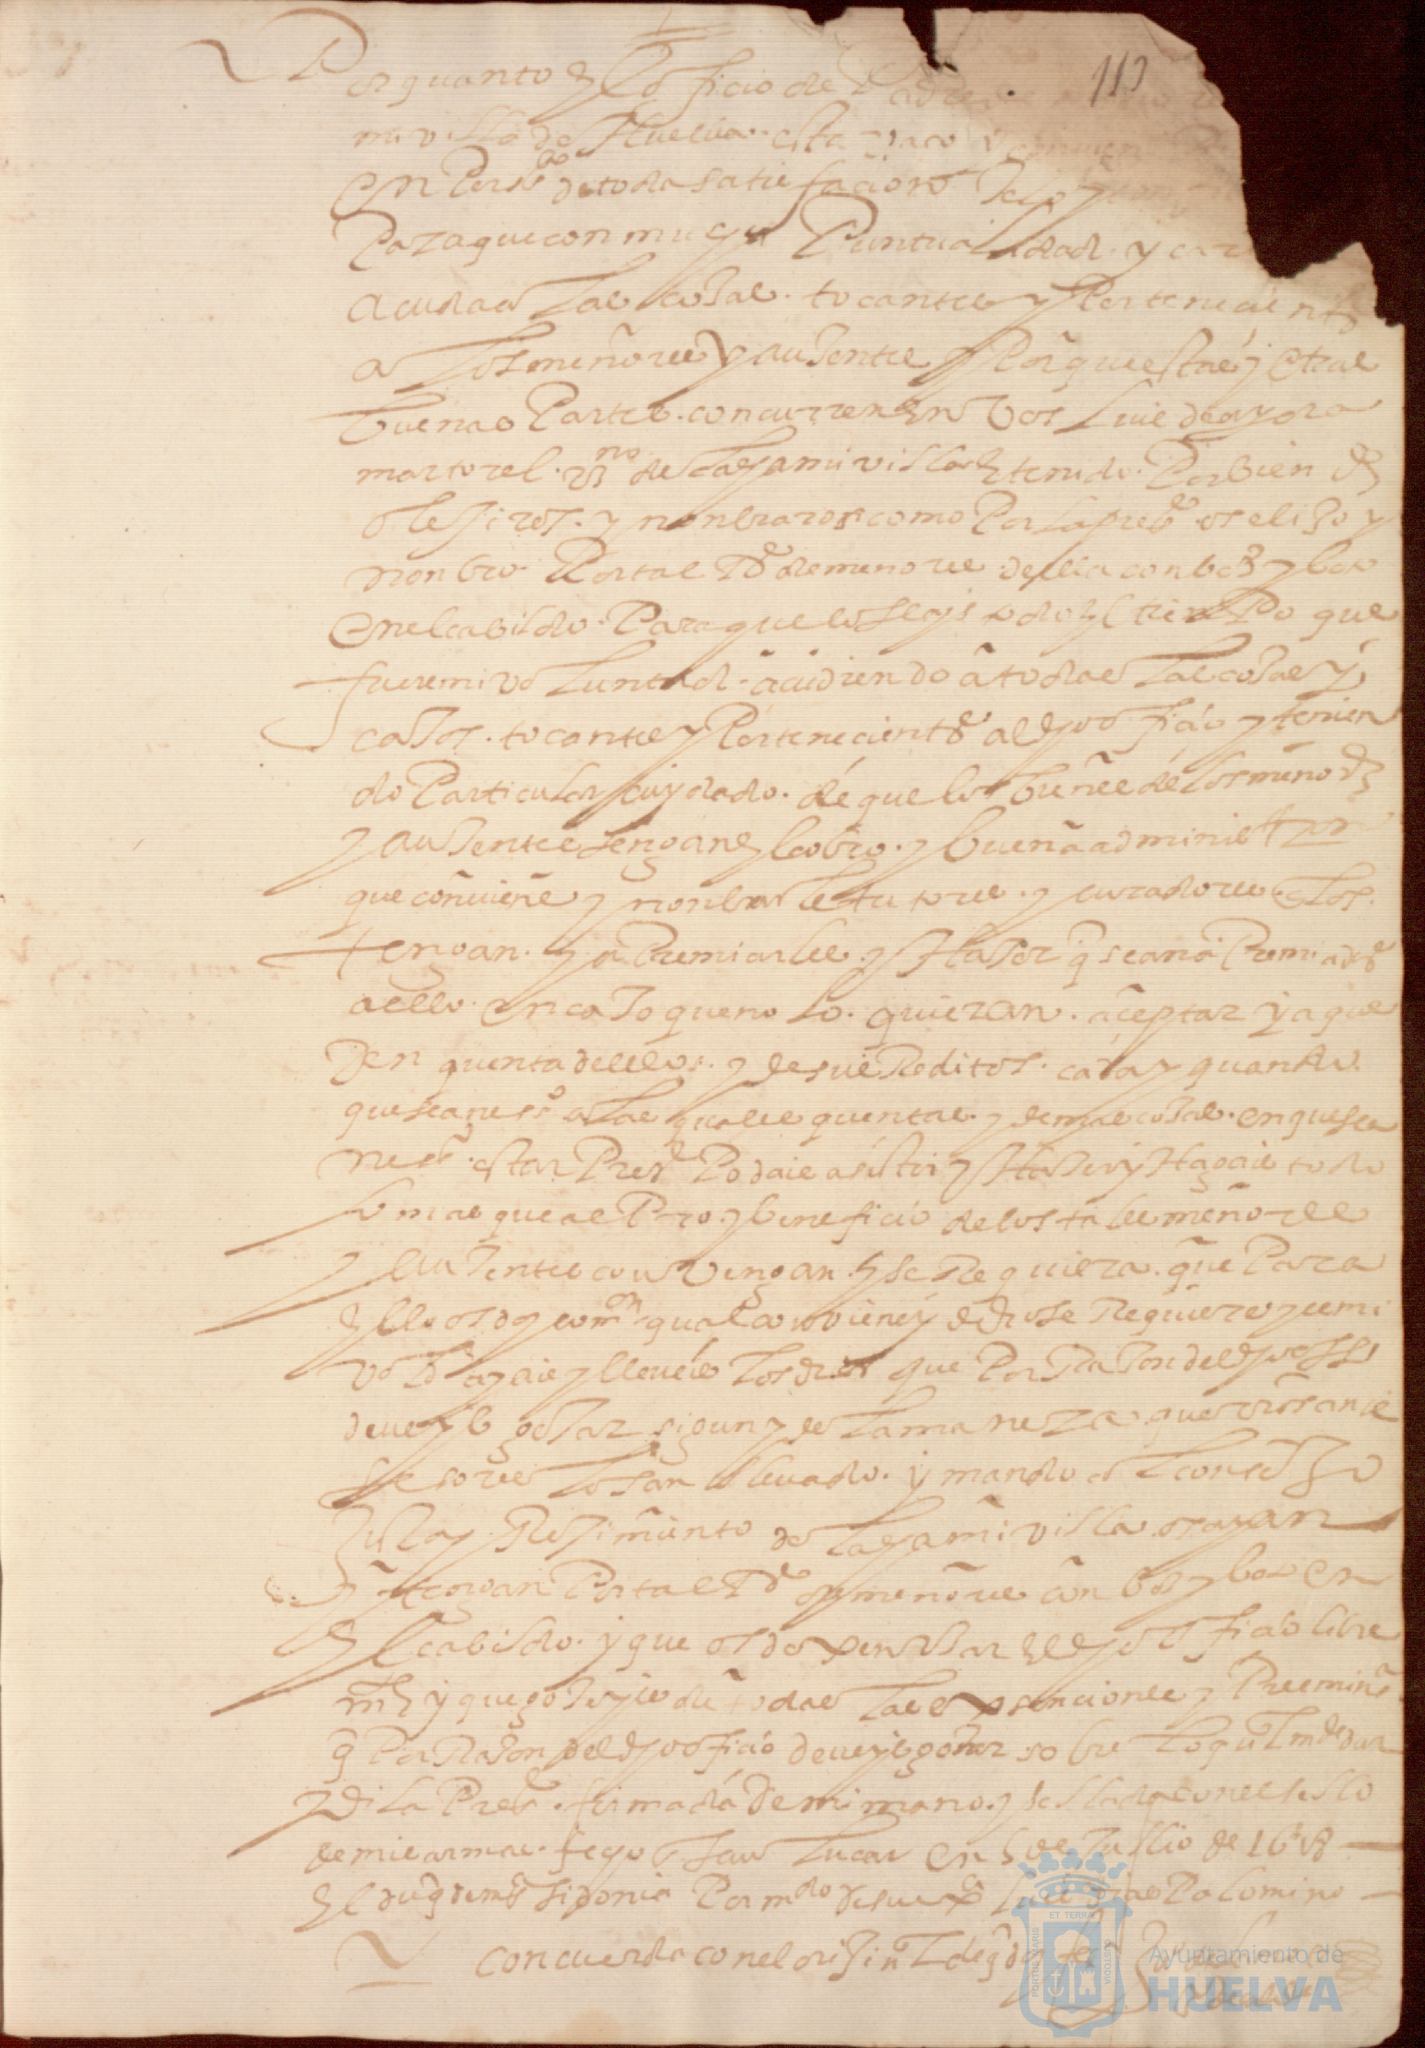 113
Por quanto el oficio de Padre
mi villa de Huelva esta vaco y conviene
en Persa de toda satisfacion
Para que con mucha Puntualidad y
acuda a las cosas tocantes y Pertenecientes
a los menores y ausentes y Porque estas y otras
buenas Partes concurren en vos Luis de ayora
martorel vno de la dha mi villa e tenido Por bien de
elejiros y nonbraros como Por la preste os elijo y
nonbro Por tal Pe de menores della con boz y boto
en el cabildo Para que lo seays todo el tienpo que
fuere mi voluntad acudiendo a todas las cosas y
casos tocantes y Pertenecientes al dho oficio y tenien
do Particular cuydado de que los bienes de los menores
y ausentes tengan el cobro y buena administron
que conviene y nonbrarles tutores y curadores
tengan y aPremiarles y Haser q sean aPremiados
a ello en caso que no lo quieran aceptar y a que
den quenta dellos y de sus Reditos cada y quando
que sea nesso a las quales quentas y demas cosas en que sea
nesso estar Preste Podais asistir y Haser y Hagais todo
lo mas que al Pro y beneficio de los tales menores
y ausentes convengan y se Requiera que Para
ello os doy comon qual conviene y de dro se Requiere y es mi
vold ayais y lleveis los dros que Por Rason del dho offo
deveys gosar sigun y de la manera que vros ante
sesores los an llevado y mando al consejo
Justa y Rejimiento de la dha mi villa os ayan
y tengan Por tal Pe de menores con bos y boto en
el cabildo y que os dexen usar el dho oficio libre
mte y que goseys de todas las exsenciones y Preemins
q Por Rason del dho oficio deveys gosar sobre lo qual mde dar
y di la Preste firmada de mi mano y sellada con el sello
de mis armas fecho san lucar en 5 de Jullio de 1618
El duq de mea sidonia Por mdo de su exa Palomino
concuerda con el orijinal
Ayuntamiento de
HUELVA
PORTUS MARIS
ET TERRAE
CUSTODIA